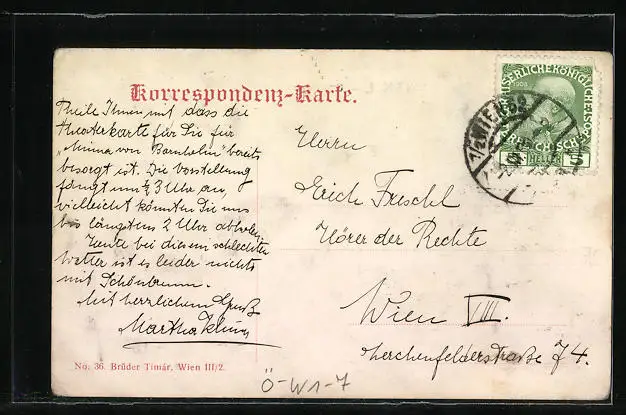 Korrespondenz-Karte.
Theile Ihnen mit dass die
Theaterkarte für Sie für
„Minna von Barnhelm" bereits
besorgt ist. Die Vorstellung
fängt um ½ 3 Uhr an,
vielleicht könnten Sie uns
bis längstens 2 Uhr abholen.
Heute bei diesem schlechten
Wetter ist es leider nichts
mit Schönbrunn.
Mit herzlichem Gruß
Martha
No. 36. Brüder Timár, Wien III/2.
Ö-W1-7
Herrn
Erich
Hörer der Rechte
Wien VIII.
Lerchenfelderstraße 74.
1908
HELLER
WIEN